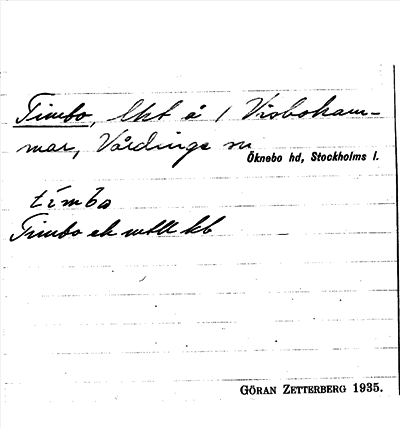 Timbo, lht å 1 Visboham-
mar, Vårdinge sn
Öknebo hd, Stockholms l.
tímbo
Timbo ek wtll kb
GÖRAN ZETTERBERG 1935.